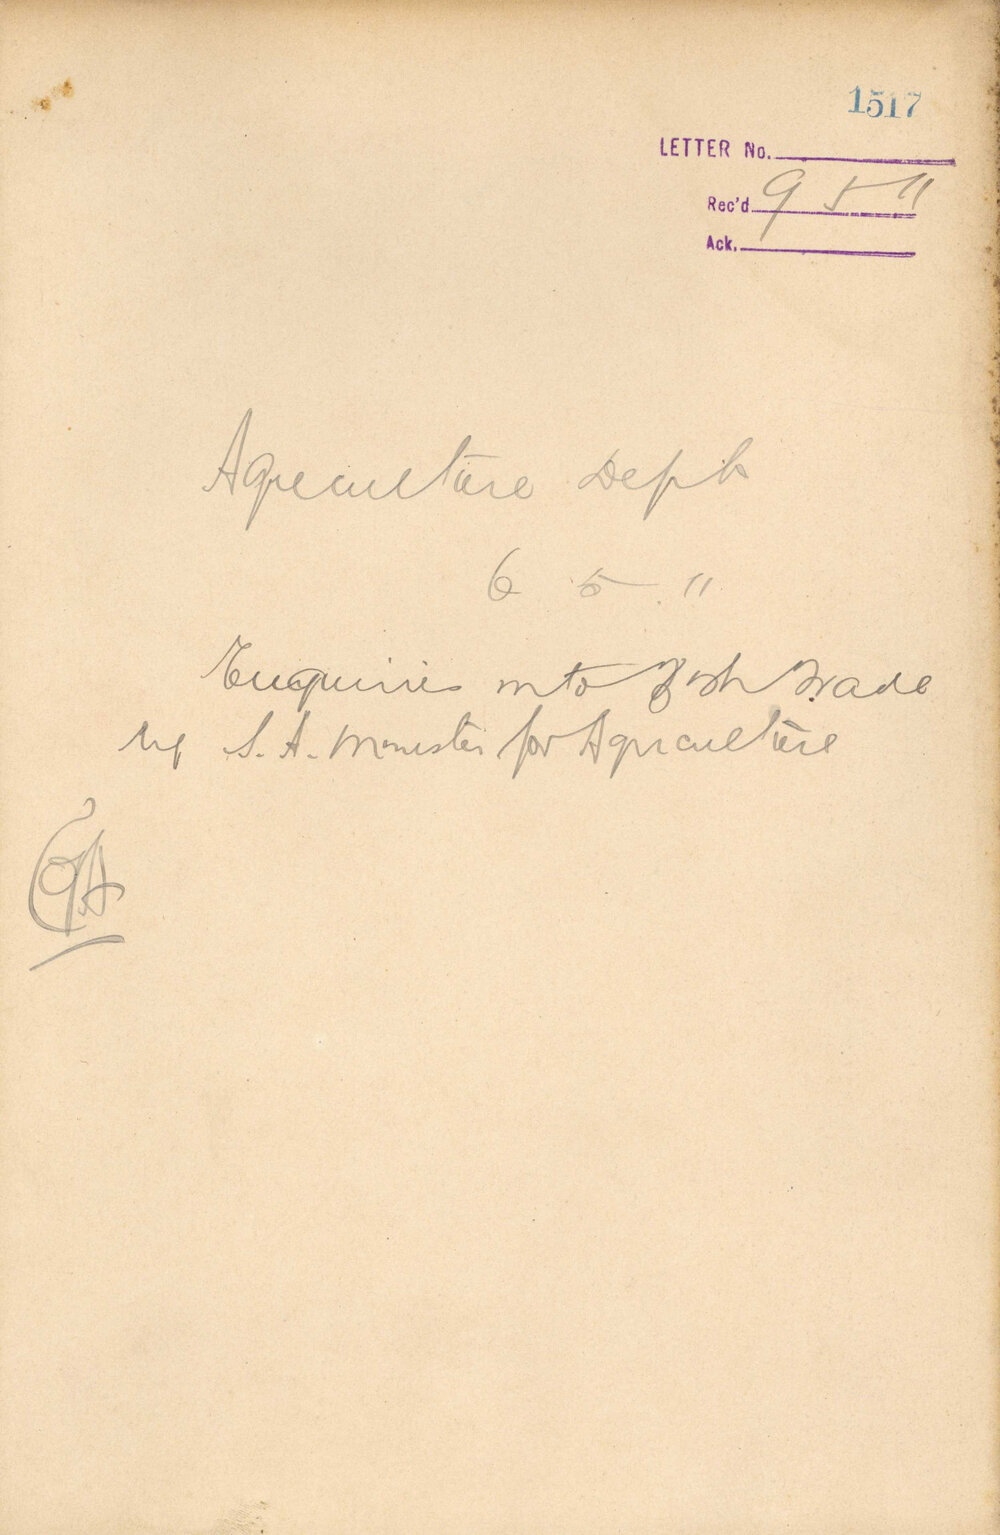 1517
LETTER No.
Rec'd 9 5 11
Ack.
Agriculture Dept
6 5 11
Enquiries into Fish Trade
by S. A. Minister for Agriculture